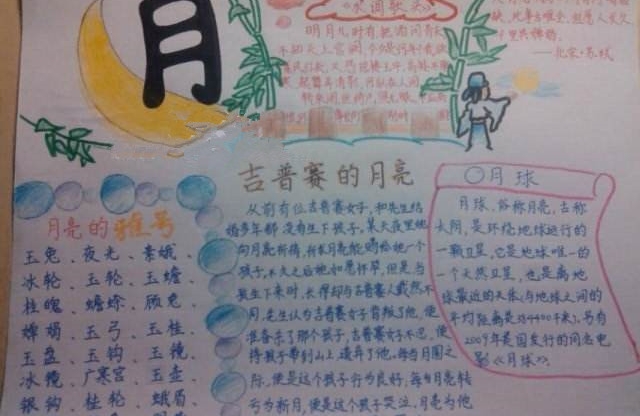 月
《水调歌头》
明月几时有,把酒问青天
不知天上宫阙
缺,此事古难全,但愿人长久
千里共婵娟。
——北宋·苏轼
吉普赛的月亮
月亮的雅号
玉兔、夜光、素娥、
冰轮、玉轮、玉蟾、
桂魄、蟾蜍、顾兔
婵娟、玉弓、玉桂、
玉盘、玉钩、玉镜、
冰镜、广寒宫、玉壶、
银钩、桂轮、蛾眉
从前有位吉普赛女子,和先生结
婚多年都没有生下孩子,某天夜里她
向月亮祈祷,祈求月亮能赐给她一个
孩子,不久之后她如愿怀孕,但是当
孩生下来时,长得却与吉普赛人截然不
同,先生认为吉普赛女子背叛了他,便
准备杀了那个孩子,吉普赛女子不忍,便
将孩子带到山上遗弃了他,每当月圆之
际,便是这个孩子行为良好,每当月亮转
亏为新月,便是这个孩子哭泣,月亮为他
〇月球
月球,俗称月亮,古称
太阴,是环绕地球运行的
一颗卫星,它是地球唯一的
一个天然卫星,也是离地
球最近的天体(与地球之间的
平均距离是384400千米)。另有
2009年是国发行的同名电
影《月球》。